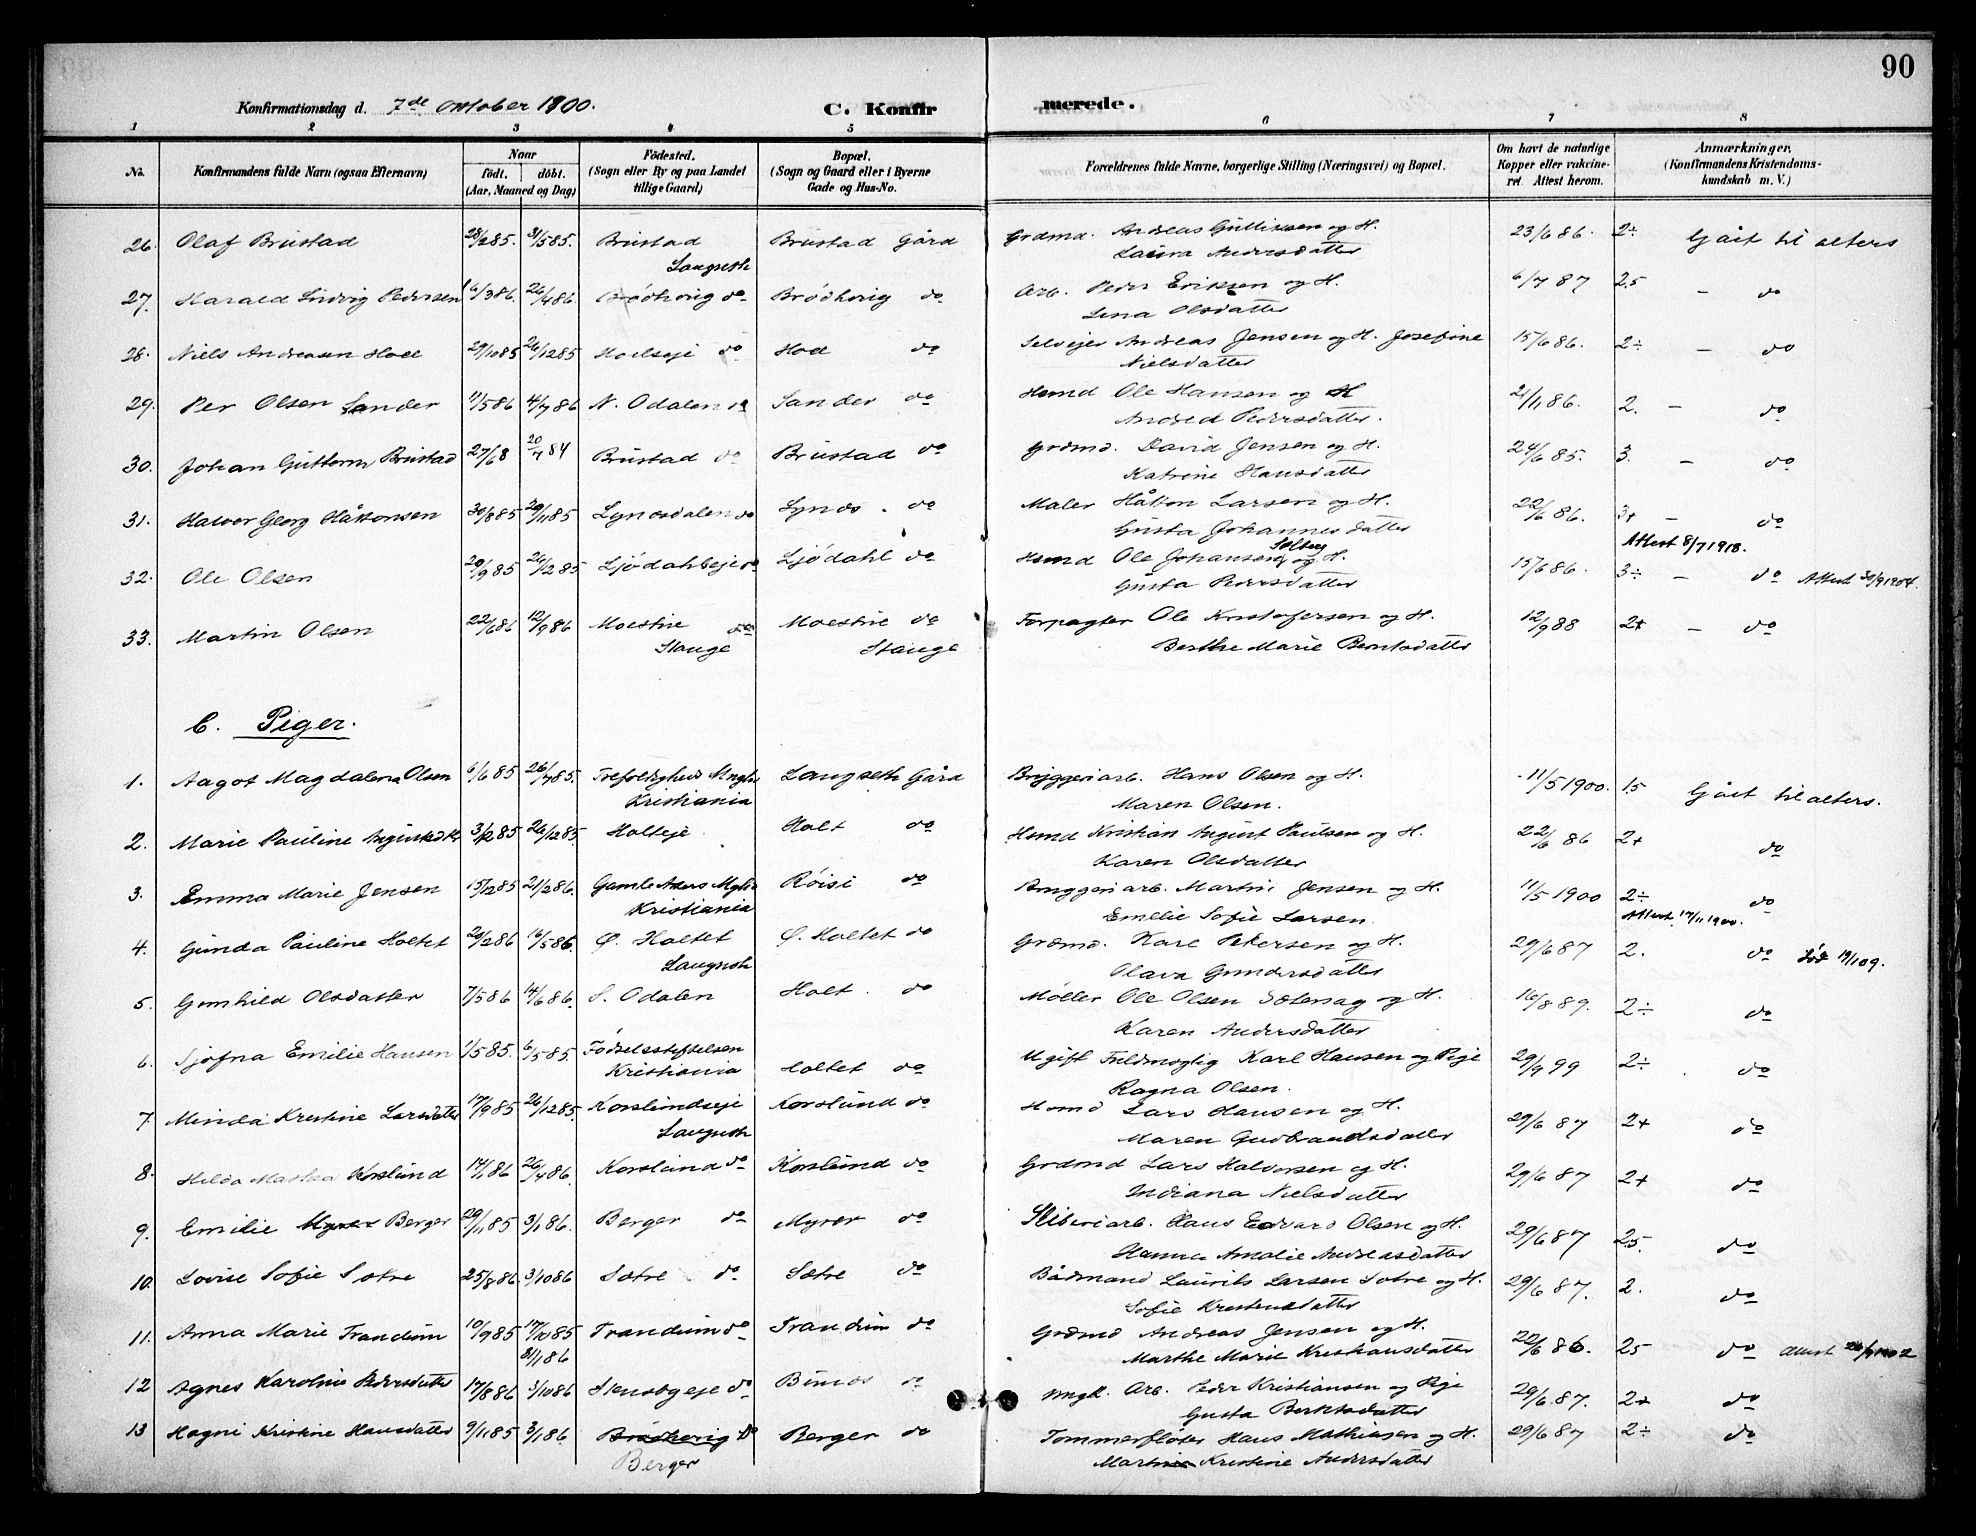 90
Konfirmationsdag d. 7de Oktober 1900. C. Konfirmerede.
1 2 3 4 5 6 7 8
No. Konfirmandens fulde Navn (ogsaa Efternavn) Naar født. døbt. (Aar, Maaned og Dag) Fødested. (Sogn eller By og paa Landet tillige Gaard) Bopæl. (Sogn og Gaard eller i Byerne Gade og Hus-No. Forældrenes fulde Navne, borgerlige Stilling (Næringsvei) og Bopæl. Om havt de naturlige Kopper eller vakcineret. Attest herom. Anmærkninger, (Konfirmandens Kristendomskundskab m. V.)
26. Olaf Brustad 28/2 85. 31/5 85. Brustad Brustad Gård Grdmd. Andreas Gulliksen og H. 23/6 86. 2÷ Gået til alters
Langseth Laura Andersdatter
27. Harald Ludvig Pedersen 16/3 86. 26/4 86. Brødhovig do Brødhovig do Arb. Peder Eriksen og H. 6/7 87 2.5 – do
Lena Olsdatter
28. Niels Andreasen Hoel 29/10 85 26/12 85 Hoelseje do Hoel do Selvejer Andreas Jensen og H. Josefine 15/6 86. 2÷ – do
Nielsdatter
29. Per Olsen Sander 11/5 86 4/7 86 N. Odalen do Sander do Hsmd Ole Hansen og H 21/11 86. 2. – do
Pedersdatter.
30. Johan Guttorm Brustad 27/6 8 20/7 84 Brustad do Brustad do Grdmd. David Jensen og H. 24/6 85. 3. – do
Katrine Hansdatter
31. Halvor Georg Håkonsen 30/8 85 29/11 85 Lynæsdalen do Lynæs. do Maler Håkon Larsen og H. 22/6 86. 3+ – do
Gusta Johannesdatter Attest 8/7 1918.
32. Ole Olsen 20/9 85 26/12 85 Ljødahlseje do Ljødahl do Hsmd Ole Johansen Solberg og H. 15/6 86. 3÷ – do Attest 30/9 1904.
Gusta Pedersdatter
33. Martin Olsen 22/6 86 12/9 86 Moestue do Moestue do Forpagter Ole Kristofersen og H. 12/9 88 2+ – do
Stange Stange Berthe Marie Berntsdatter
C. Piger.
1. Aagot Magdalena Olsen 6/6 85 26/7 85. Trefoldigheds Mngh Langseth Gård Bryggeriarb. Hans Olsen og H. 11/5 1900. 1.5 Gået til alters.
Kristiania Maren Olsen.
2. Marie Pauline Augustsdtr 3/12 85 26/12 85. Holteje. Holt do Hsmd Kristian August Paulsen og H. 22/6 86 2+ do
Karen Olsdatter
3. Emma Marie Jensen 15/12 85 21/2 86. Gamle Akers Mgh Røisi do Bryggeriarb. Martin Jensen og H. 11/5 1900 2÷ do
Kristiania Emelie Sofie Larsen. Attest 17/11 1900.
4. Gunda Pauline Holtet 20/2 86 16/5 86 Ø. Holtet Ø. Holtet do Grdmd. Karl Petersen og H. 29/6 87 2. do Død 19/1 09.
Langseth Olava Gundersdatter
5. Gunhild Olsdatter 7/5 86 14/6 86. S. Odalen Holt. do Møller Ole Olsen Sætersag og H. 16/8 89. 2÷ do
Karen Andersdatter
6. Sjøfna Emilie Hansen 1/5 85. 6/5 85. Fødselsstiftelsen Ugift Fuldmægtig Karl Hansen og Pige 29/9 99 2÷ do
Kristiania Holtet do Ragna Olsen.
7. Minda Kristine Larsdatter 17/9 85 26/12 85. Korslundseje Korslund do Hsmd Lars Hansen og H. 29/6 87 2+ do
Langseth Maren Gudbrandsdatter
8. Hilda Korslund 14/1 86 26/4 86. Korslund do Korslund do Grdmd Lars Halvorsen og H. 29/6 87 2+ do
Indiana Nielsdatter
9. Emilie Myrer Berger 29/11 85 3/1 86. Berger do Myrer do Sliberiarb. Hans Edvard Olsen og H. 29/6 87 2.5. do
Hanna Amalie Andreasdatter
10. Lovise Sofie Sætre 25/8 86. 3/10 86 Sætre do Sætre do Bådmand Laurits Larsen Sætre og H. 29/6 87. 2. do
Sofie Kristensdatter
11. Anna Marie Trandum 10/9 85 17/10 85 Trandum do Trandum do Grdmd Andreas Jensen og H. 22/6 86. 2.5 do Attest
31/1 86 Marthe Marie Kristiansdatter
12 Agnes Karoline Pedersdatter 17/8 86 3/10 86 Stensbyeje do Bunæs do Ungk. Arb. Peder Kristiansen og Pige 29/6 87. 2+ do
Gusta
13 Hagni Kristine Hansdatter 9/11 85 3/1 86. Brødhovig do Berger do Tømmerfløter Hans Mathiesen og H. 29/6 87 2÷ do
Berger Martine Kristine Andersdatter